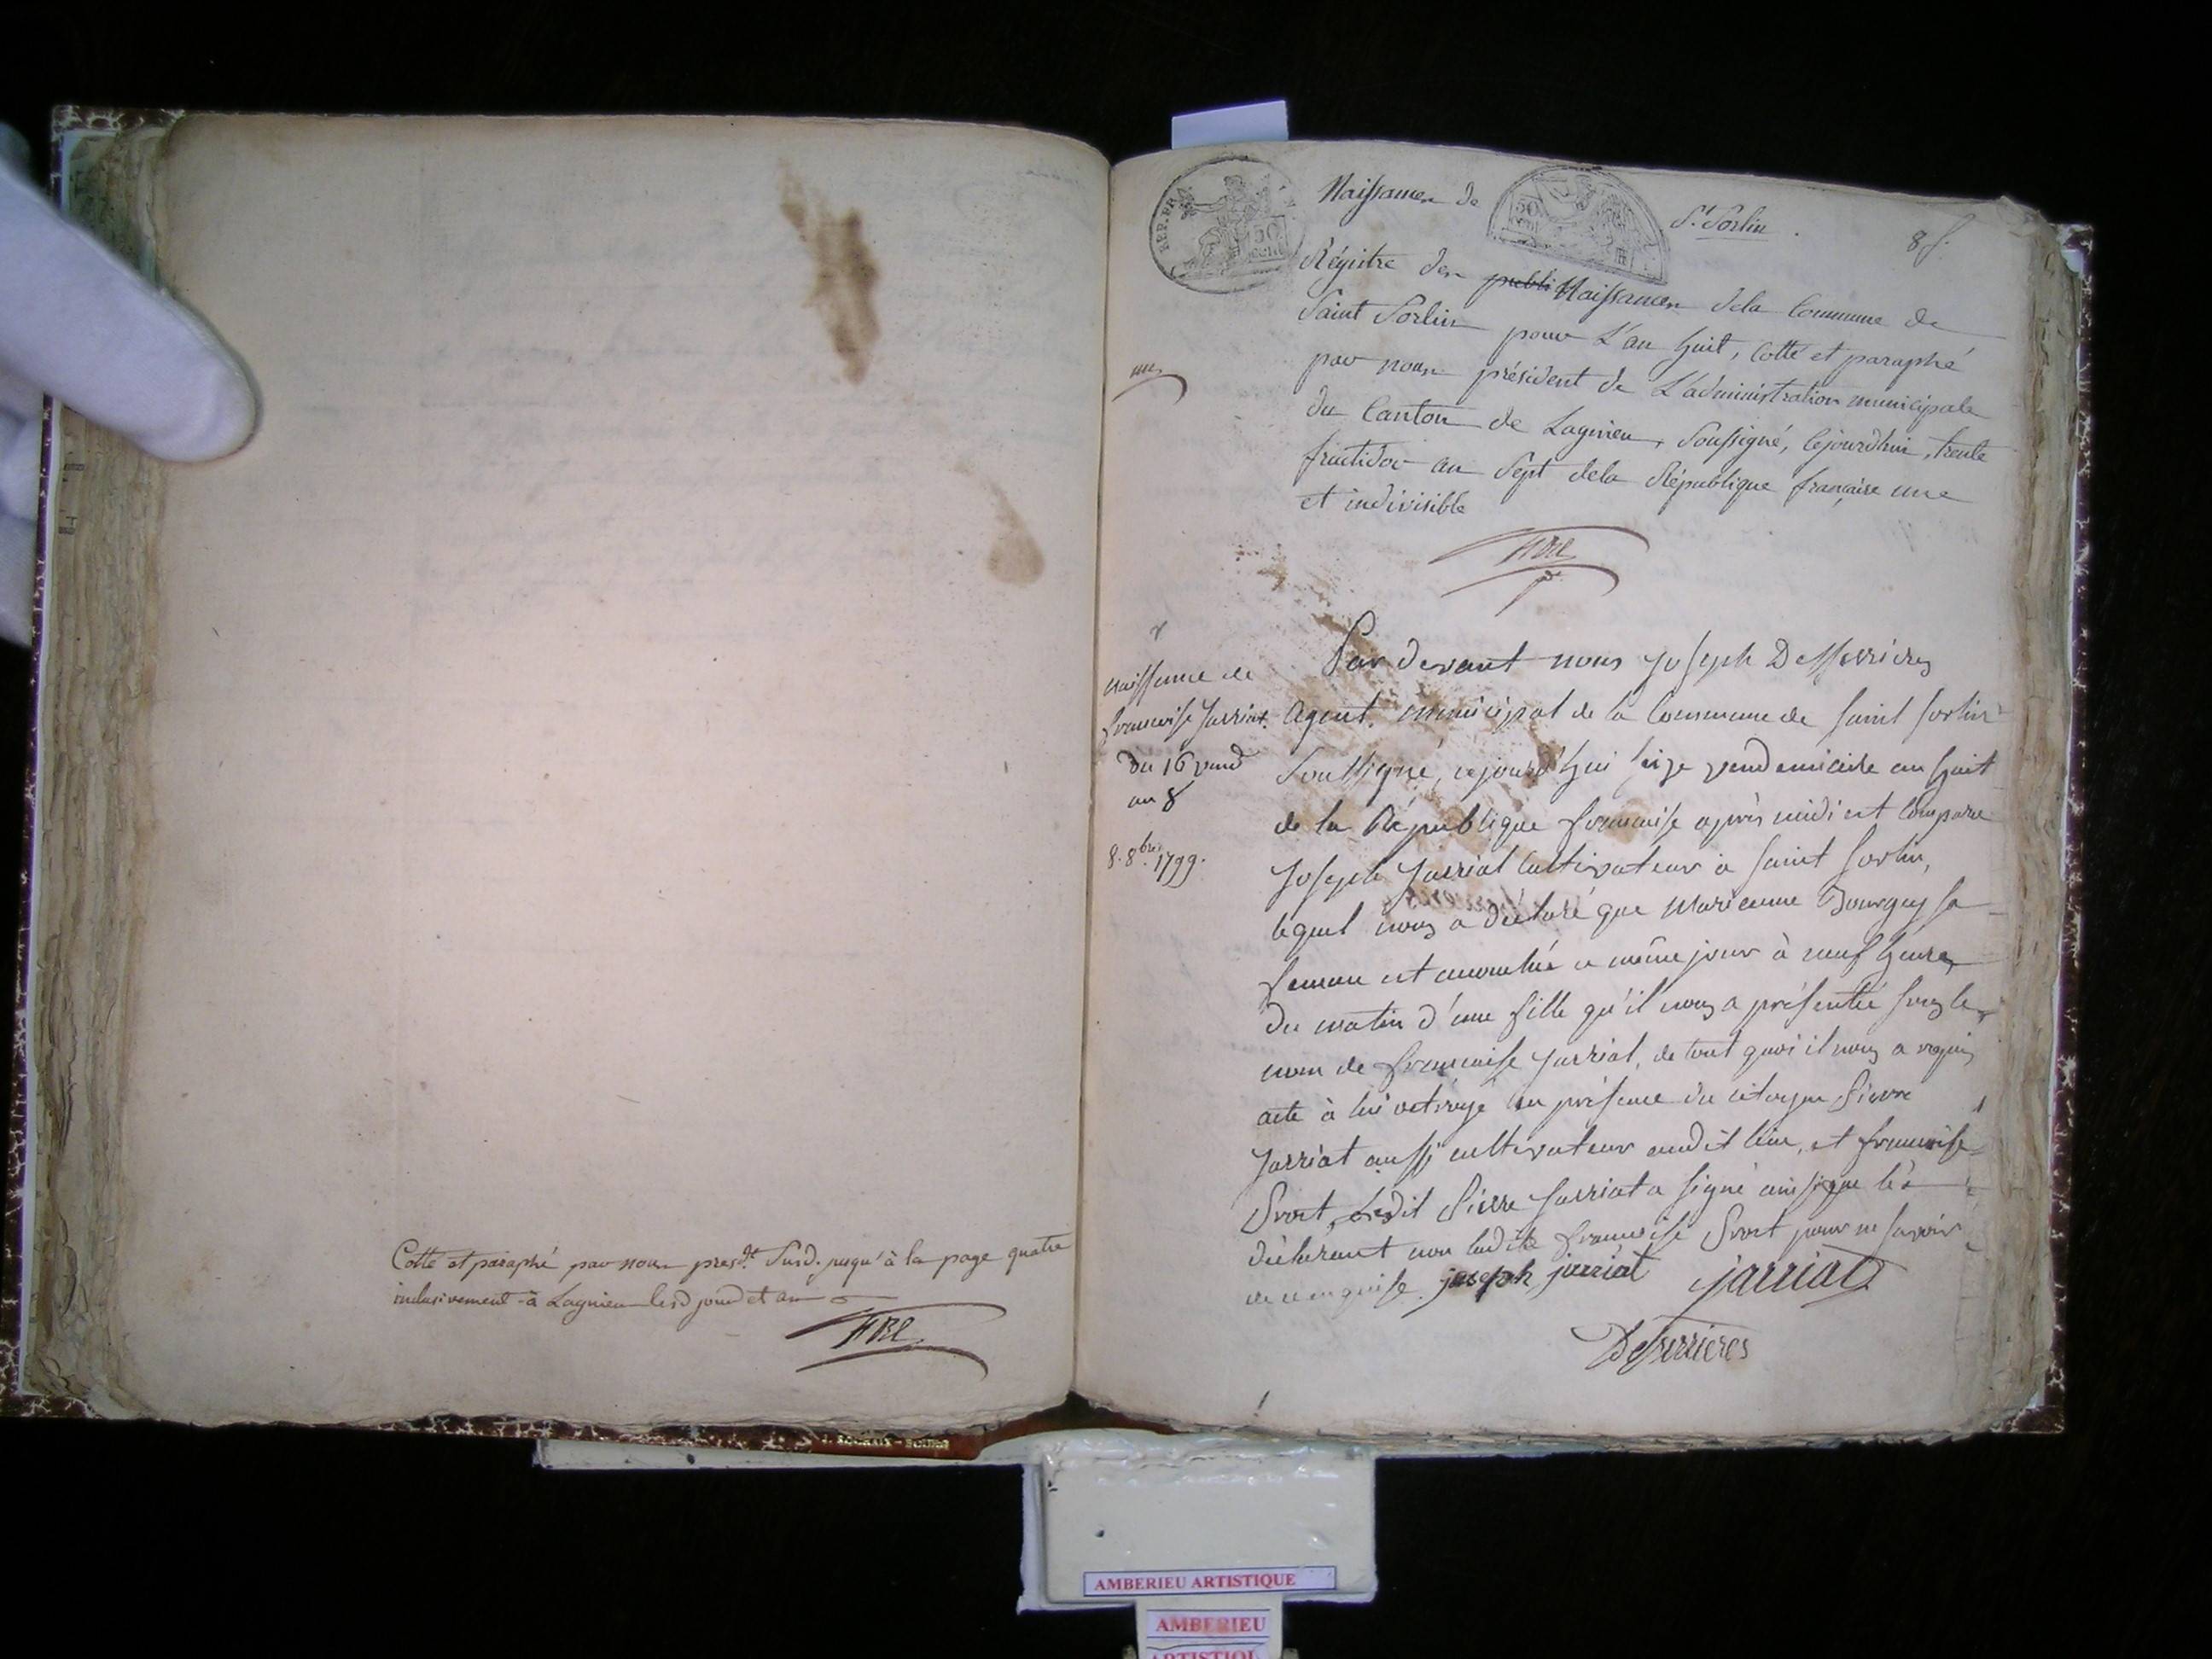 Cotté et paraphé par nous presdt. Susd. jusqu'à la page quatre
inclusivement à Lagnieu lesd jour et an
Naissances de St. Sorlin.
8 f.
REP. FRA
50
cent
50
cent
Régistre des publi Naissances dela Commune de
Saint Sorlin pour L'an huit, Cotté et paraphé
par nous président de L'administration municipale
du Canton de Lagnieu, Soussigné, Cejourdhui, trente
fructidor an Sept dela République française une
et indivisible
une
naissance de
francoise Jarriat.
du 16 vend
an 8
8. 8bre 1799.
Par devant nous Joseph Desserrieres
Agent municipal de la Commune de saint sorlin
Soussigné, cejourd'hui seize vendemiaire an huit
de la République francaise après midi est comparu
Joseph Jarriat cultivateur à saint sorlin,
lequel nous a déclaré que marianne Bourguy sa
femme est accouchée ce même jour à neuf heures
du matin d'une fille qu'il nous a présentée sous le
nom de francoise Jarriat, de tout quoi il nous a requis
acte à lui octroyé en présence du citoyen Pierre
Jarriat aussi cultivateur audit lieu, et francoise
Prost, Ledit Pierre Jarriat a signé ainsi que le
déclarant non ladite francoise Prost pour ne savoir
de ce enquise. joseph jarriat jarriat
Desserrieres
J. ROUHAIX - BOURG
AMBERIEU ARTISTIQUE
AMBERIEU
ARTISTIQU